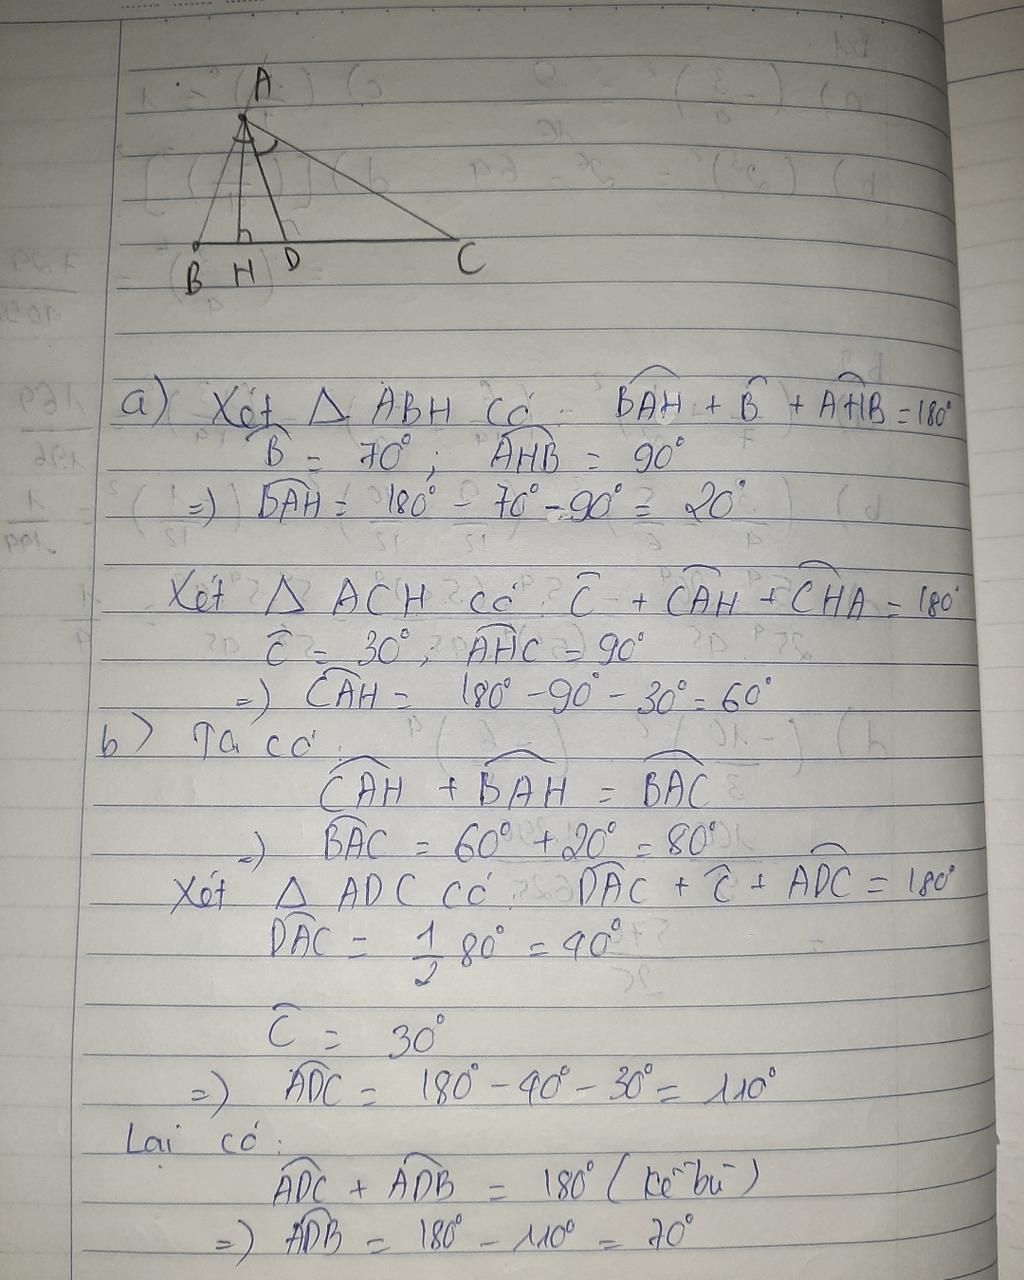 A
B H D C
a) Xét Δ ABH có: \widehat{BAH} + \widehat{B} + \widehat{AHB} = 180°
\widehat{B} = 70°; \widehat{AHB} = 90°
=) \widehat{BAH} = 180° - 70° - 90° = 20°
Xét Δ ACH có: \widehat{C} + \widehat{CAH} + \widehat{CHA} = 180°
\widehat{C} = 30°; \widehat{AHC} = 90°
=) \widehat{CAH} = 180° - 90° - 30° = 60°
b) Ta có:
\widehat{CAH} + \widehat{BAH} = \widehat{BAC}
=) \widehat{BAC} = 60° + 20° = 80°
Xét Δ ADC có: \widehat{DAC} + \widehat{C} + \widehat{ADC} = 180°
\widehat{DAC} = \frac{1}{2} 80° = 40°
\widehat{C} = 30°
=) \widehat{ADC} = 180° - 40° - 30° = 110°
Lại có:
\widehat{ADC} + \widehat{ADB} = 180° (kề bù)
=) \widehat{ADB} = 180° - 110° = 70°